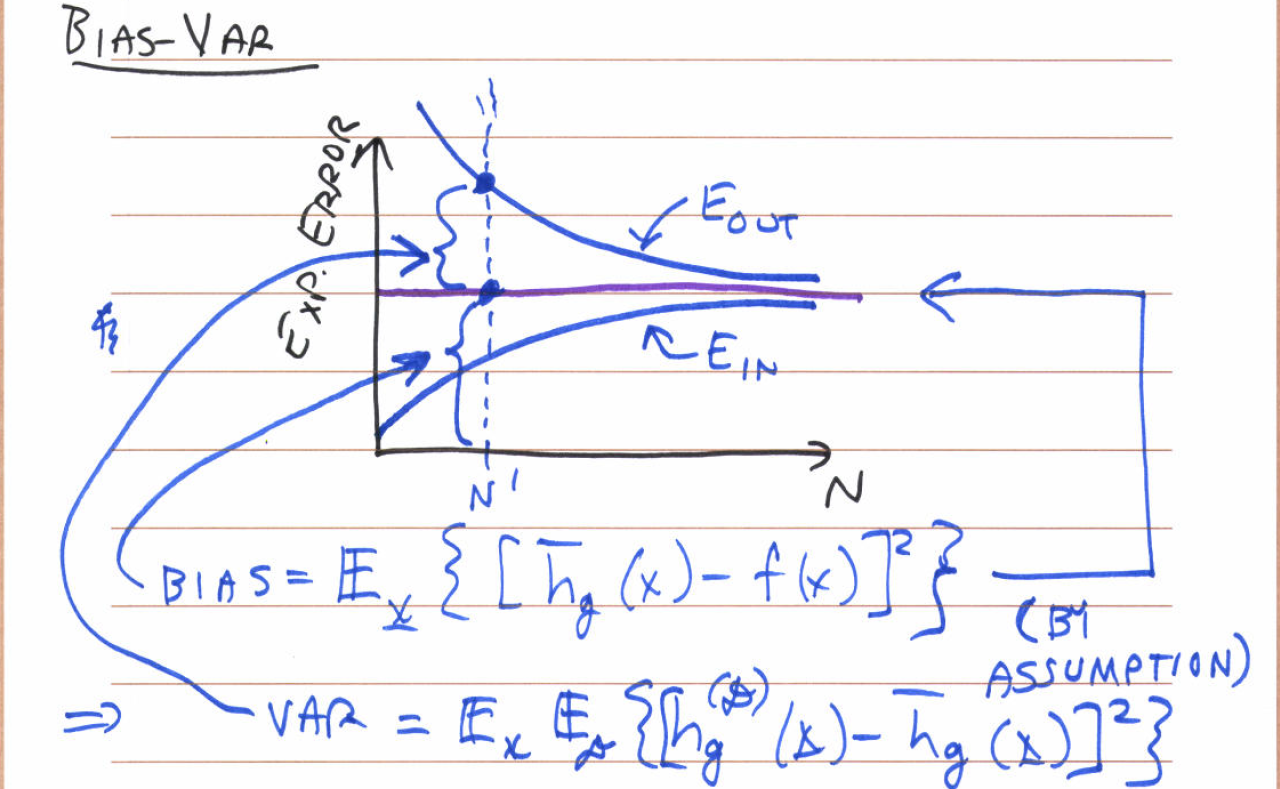 BIAS-VAR
EXP. ERROR
E_OUT
E_IN
N'
N
BIAS = 𝔼_x { [ h̄_g (x) - f(x) ]² }
(BY
ASSUMPTION)
⇒ VAR = 𝔼_x 𝔼_𝒟 { [ h_g^(𝒟) (x) - h̄_g (x) ]² }